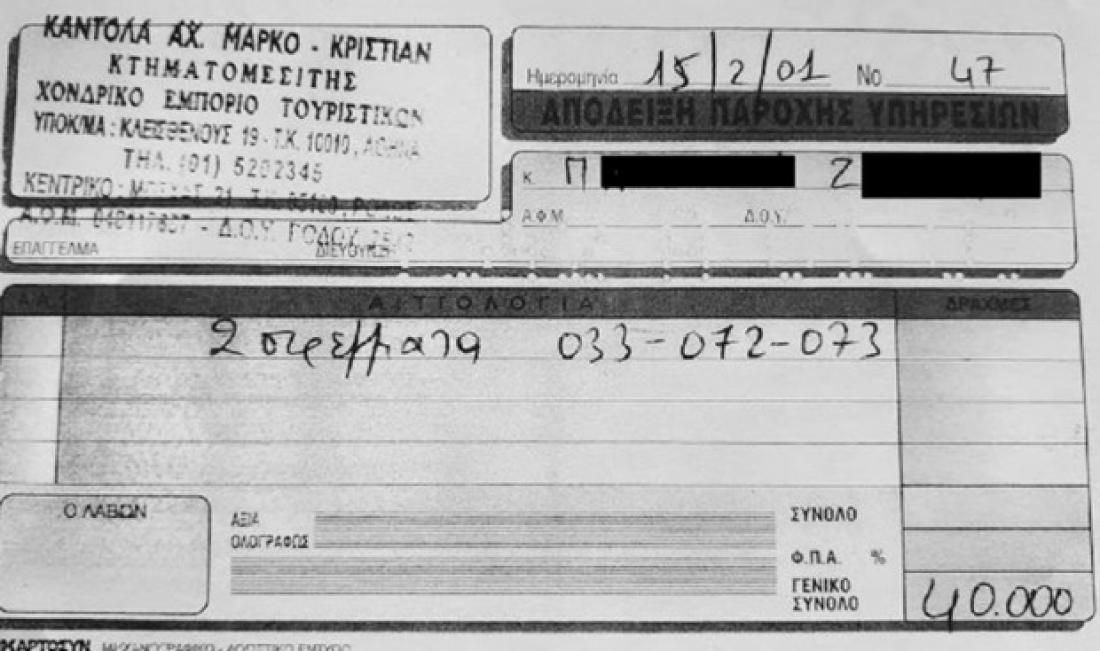 ΚΑΝΤΟΛΑ ΑΧ. ΜΑΡΚΟ - ΚΡΙΣΤΙΑΝ
ΚΤΗΜΑΤΟΜΕΣΙΤΗΣ
ΧΟΝΔΡΙΚΟ ΕΜΠΟΡΙΟ ΤΟΥΡΙΣΤΙΚΩΝ
ΥΠΟΚ/ΜΑ: ΚΛΕΙΣΘΕΝΟΥΣ 19 - Τ.Κ. 10010, ΑΘΗΝΑ
ΤΗΛ. (01) 5202345
ΚΕΝΤΡΙΚΟ: 21
Δ.Ο.Υ.
ΕΠΑΓΓΕΛΜΑ
Ημερομηνία 15/2/01 No 47
ΑΠΟΔΕΙΞΗ ΠΑΡΟΧΗΣ ΥΠΗΡΕΣΙΩΝ
Κ. Π
Α.Φ.Μ. Δ.Ο.Υ.
Α.Α. ΑΙΤΙΟΛΟΓΙΑ ΔΡΑΧΜΕΣ
2 στρέμματα 033-072-073
Ο ΛΑΒΩΝ
ΑΞΙΑ
ΟΛΟΓΡΑΦΩΣ
ΣΥΝΟΛΟ
Φ.Π.Α. %
ΓΕΝΙΚΟ
ΣΥΝΟΛΟ
40.000